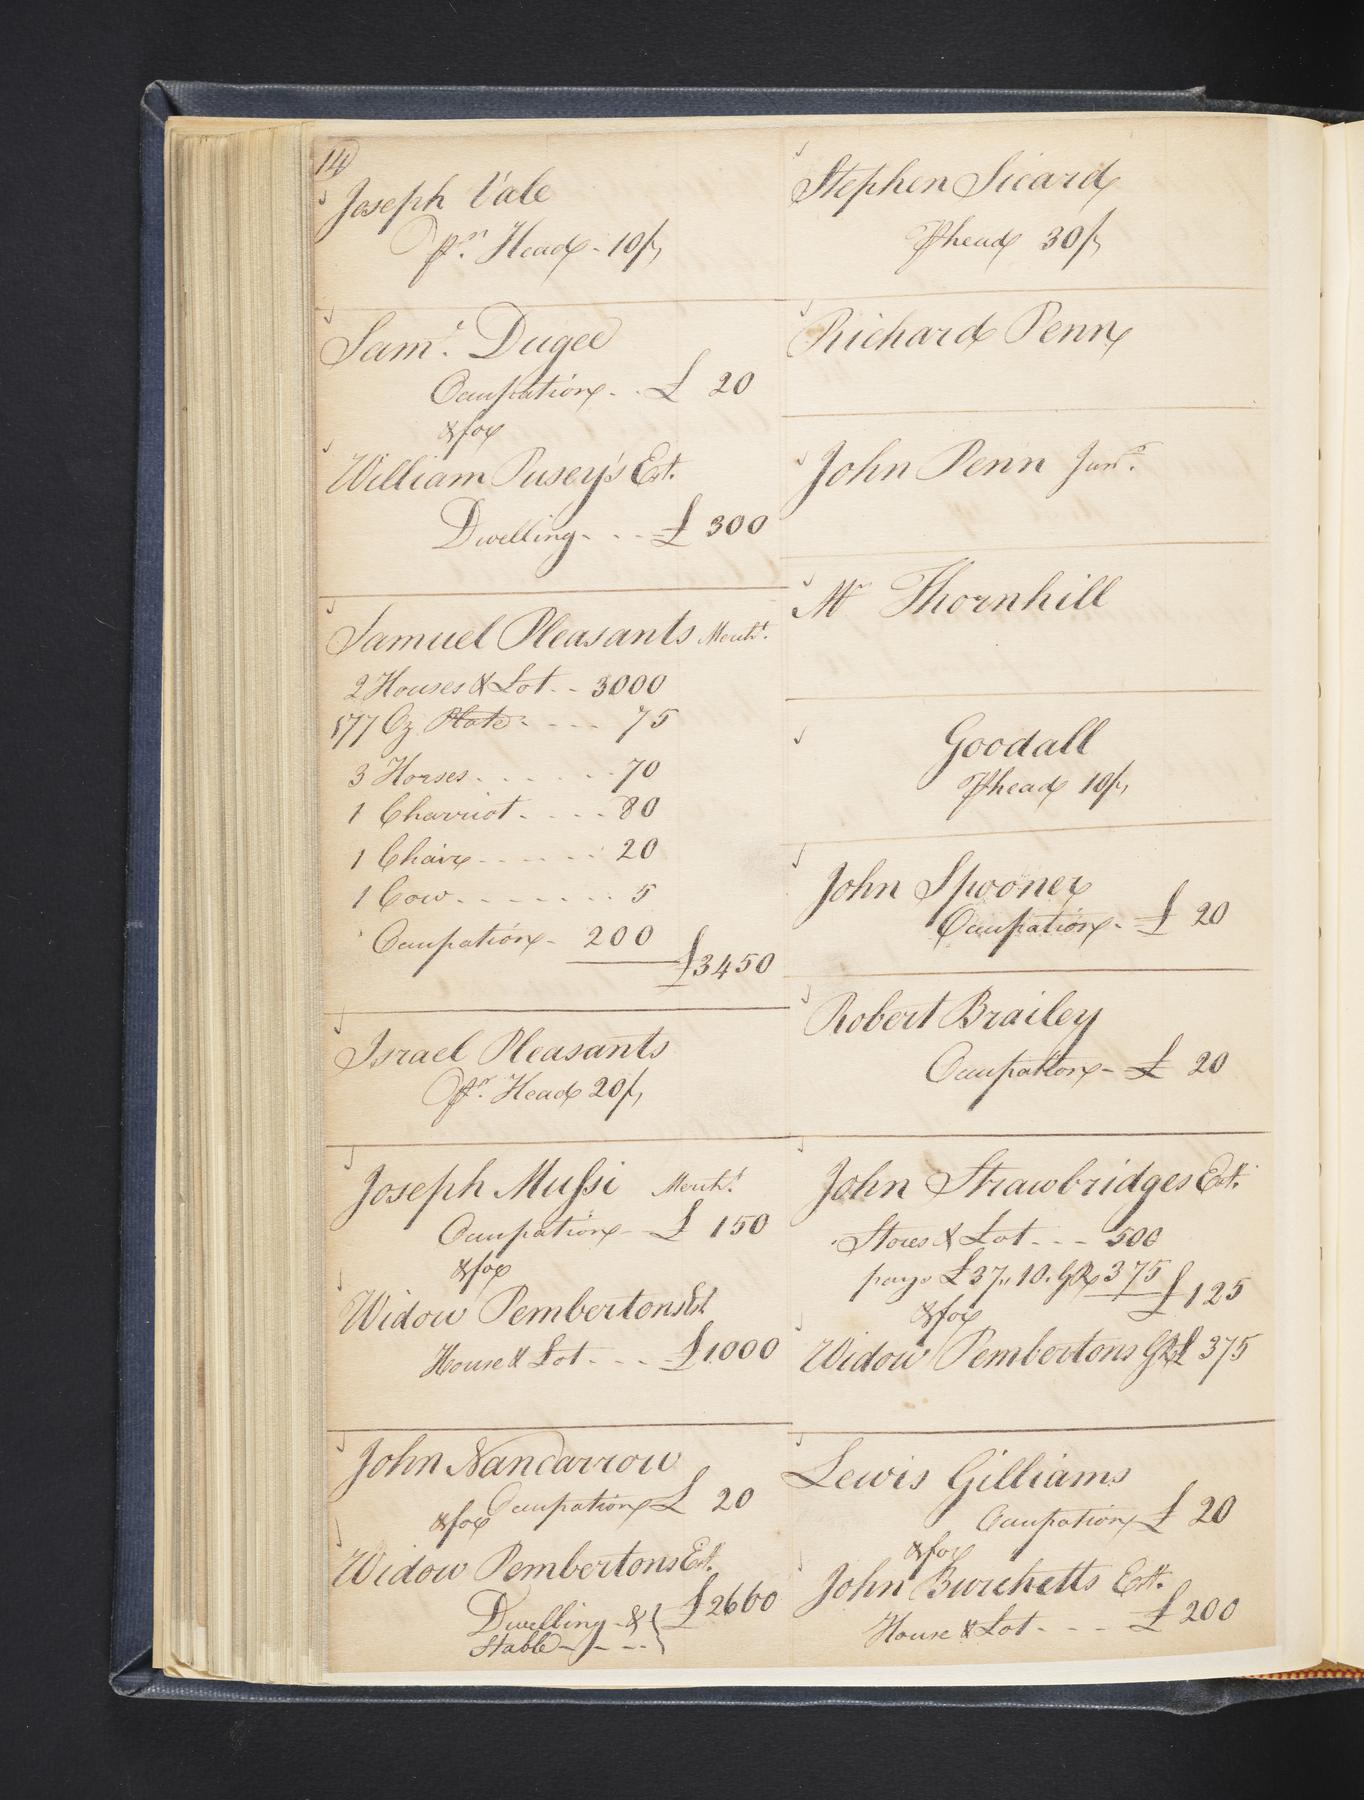 14
Joseph Vale
Pr. Head - 10/,
Saml. Dugee
Occupation - . £ 20
& for
William Pusey's Est.
Dwelling - - - £ 300
Samuel Pleasants Mercht.
2 Houses & Lot - - 3000
177 Oz Plate - - - - 75
3 Horses - - - - - 70
1 Charriot - - - - 80
1 Chair - - - - - 20
1 Cow - - - - - - 5
Occupation - 200
£3450
Israel Pleasants
Pr. Head 20/,
Joseph Mussi Mercht.
Occupation - £ 150
& for
Widow Pembertons Est
House & Lot - - - £1000
John Nancarrow
Occupation £ 20
& for
Widow Pembertons Est.
Dwelling & } £2660
Stable - - - -
Stephen Sicard
P head 30/,
Richard Penn
John Penn Junr.
Mr Thornhill
Goodall
P head 10/,
John Spooner
Occupation - £ 20
Robert Brailey
Occupation - £ 20
John Strawbridges Est.
Stores & Lot - - - 500
pays £37,, 10. GR 375
£125
& for
Widow Pembertons GR £ 375
Lewis Gilliams
Occupation £ 20
& for
John Burchetts Est.
House & Lot - - - £ 200